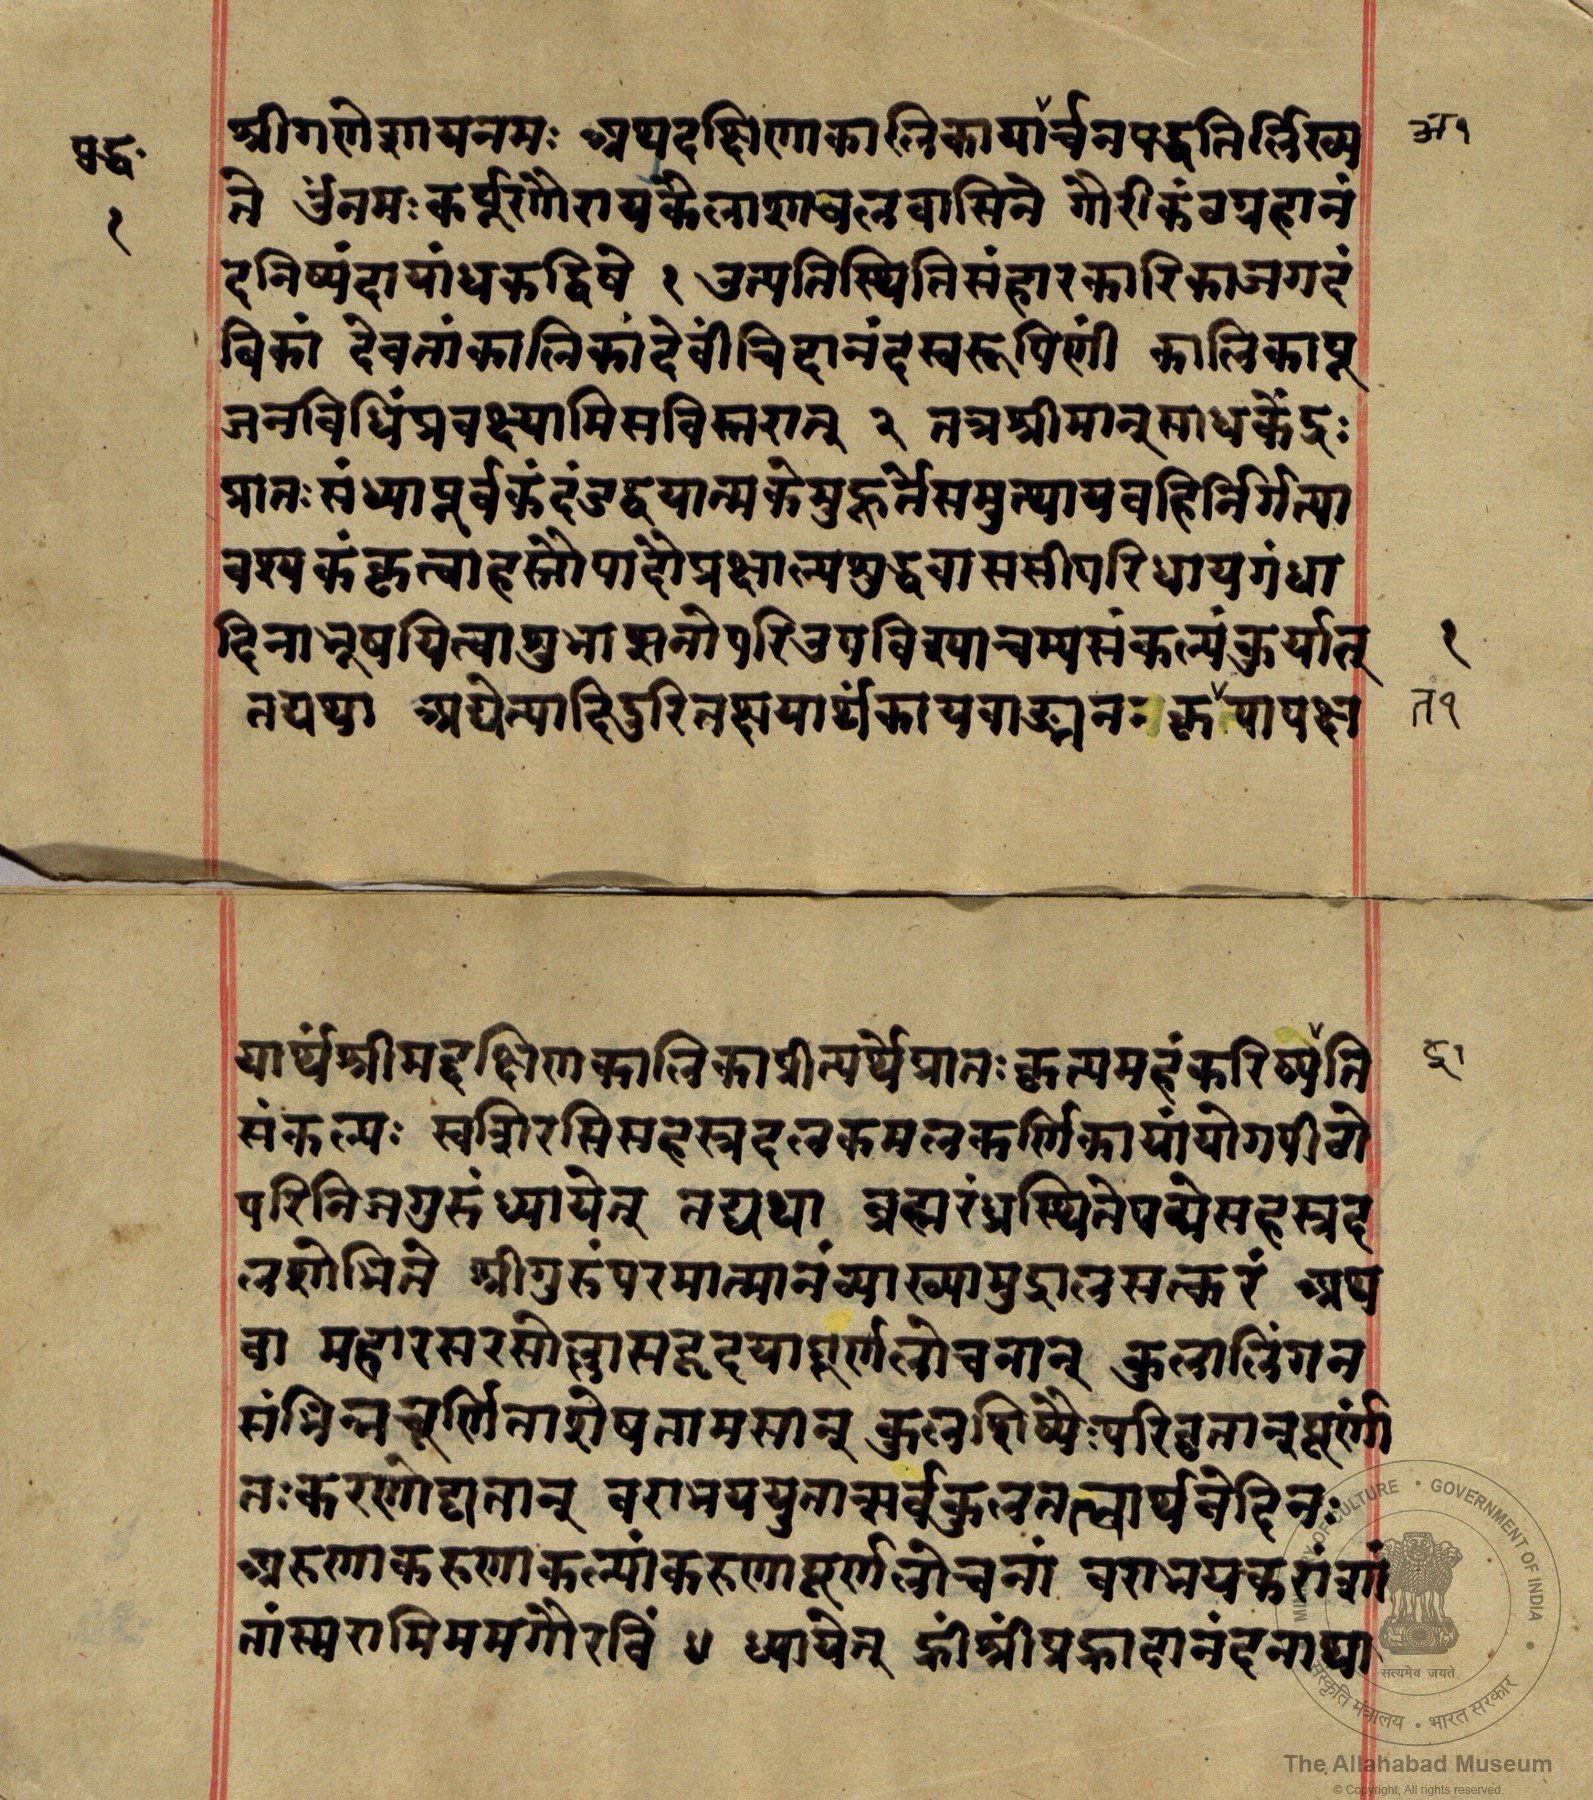 श्रीगणेशायनमः अथदक्षिणाकालिकायार्चनपद्धतिर्लिख्य
अ१
पद्ध॰
१
ते ॐनमःकर्पूरगौरायकैलाशाचलवासिने गौरीकंठग्रहानं
दनिष्यंदायांधकद्विषे १ उत्पतिस्थितिसंहारकारिकाजगदं
बिकां देवतांकालिकांदेवींचिदानंदस्वरूपिणीं कालिकापू
जनविधिंप्रवक्ष्यामिसविस्तरात् २ तत्रश्रीमान्साधकेंद्रः
प्रातःसंध्यापूर्वकंदंडद्वयात्मकेमुहूर्तेसमुत्थायबहिर्निर्गत्या
वश्यकंकृत्वाहस्तौपादौप्रक्षाल्यशुद्धवाससीपरिधायगंधा
दिनाभूषयित्वाशुभासनोपरिउपविश्याचम्यसंकल्पंकुर्यात्
१
तद्यथा अद्येत्यादिदुरितक्षयार्थंकायवाङ्मनकृपापक्ष
त१
यार्थंश्रीमद्दक्षिणकालिकाप्रीत्यर्थेप्रातःकृत्यमहंकरिष्येति
द्र१
संकल्पः स्वशिरसिसहस्रदलकमलकर्णिकायांयोगपीठो
परिनिजगुरुंध्यायेत् तद्यथा ब्रह्मरंध्रस्थितेपद्मेसहस्रद
लशोभिते श्रीगुरुंपरमात्मानंव्याख्यामुद्रालसत्करं अथ
वा महारसरसोल्लासहृदयाघूर्णलोचनान् कुलालिंगन
संभिन्नचूर्णिताशेषतामसान् कुलशिष्यैःपरिवृतान्पूर्णां
तःकरणोद्यतान् वराभययुतान्सर्वकुलतत्वार्थवेदिनः
अरुणाकरुणाकल्पांकरुणापूर्णलोचनां वराभयकरांशां
तांस्मरामिममगौरविं ४ ध्यायेत् ह्रींश्रींप्रह्लादानंदनाथा
सत्यमेव जयते
MINISTRY OF CULTURE • GOVERNMENT OF INDIA
संस्कृति मंत्रालय • भारत सरकार
The Allahabad Museum
© Copyright, All rights reserved.